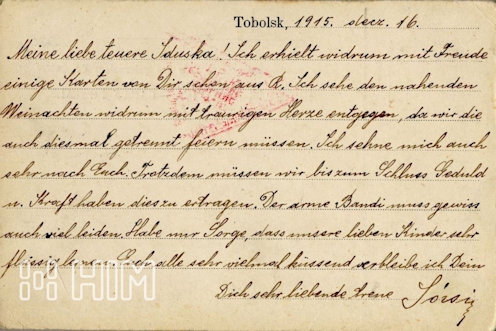 Tobolsk, 1915. decz. 16.
Meine liebe teuere Iduska! Ich erhielt widrum mit Freude
einige Karten von Dir schon aus R. Ich sehe den nahenden
Weinachten widrum mit traurigen Herze entgegen, da wir die
auch diesmal getrennt feiern müssen. Ich sehne mich auch
sehr nach Euch. Trotzdem müssen wir bis zum Schluss Geduld
u. Kraft haben dies zu ertragen. Der arme Bandi muss gewiss
auch viel leiden. Habe nur Sorge, dass unsere lieben Kinder sehr
fliessig lernen. Euch alle sehr vielmal küssend verbleibe ich Dein
Dich sehr liebende treue
HIM